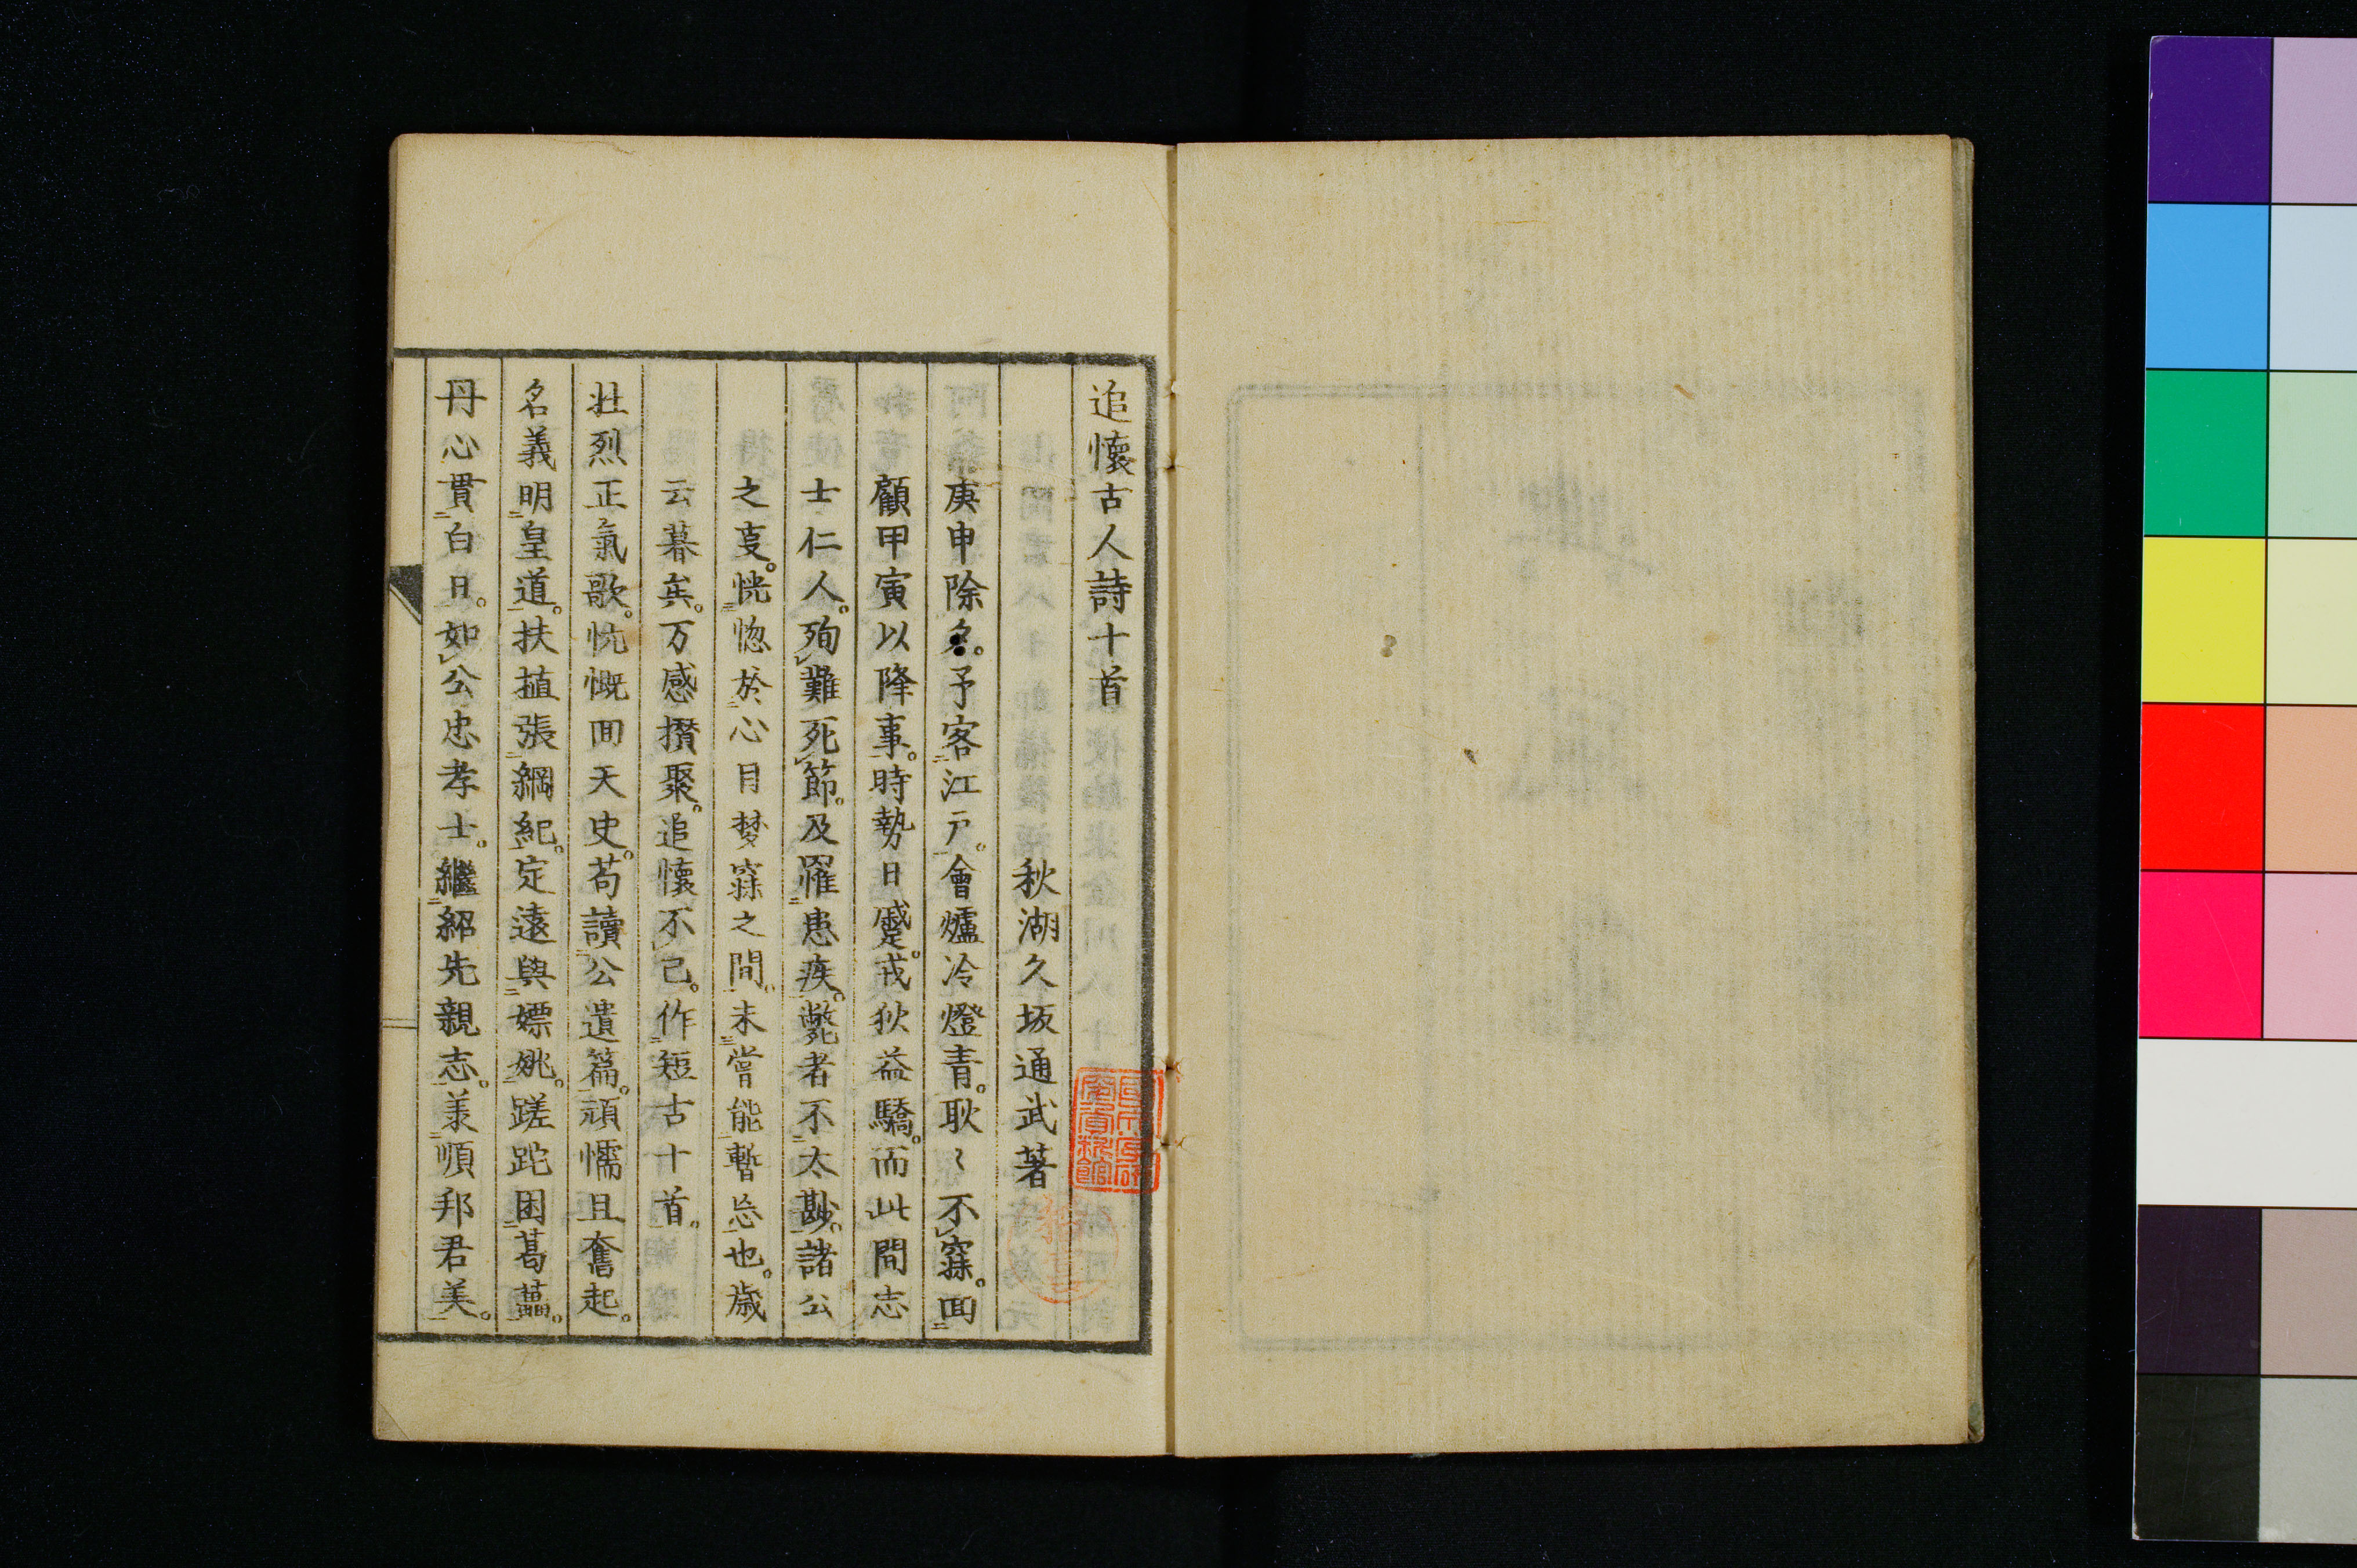 追懷古人詩十首
秋湖久坂通武著
庚申除夕。予客江戸。會爐冷燈青。耿〻不寐。回
顧甲寅以降事。時勢日蹙。戎狄益驕。而此間志
士仁人。殉難死節。及罹患疾。斃者不太尠。諸公
之㕝。恍惚於心目梦寐之間。未嘗能暫忘也。歳
云暮矣。万感攢聚。追懷不已。作短古十首。
壯烈正氣歌。忼慨回天史。苟讀公遺篇。頑懦且奮起。
名義明皇道。扶植張綱紀。定遠與嫖姚。蹉跎困葛藟。
丹心貫白日。如公忠孝士。繼紹先親志。羕順邦君美。